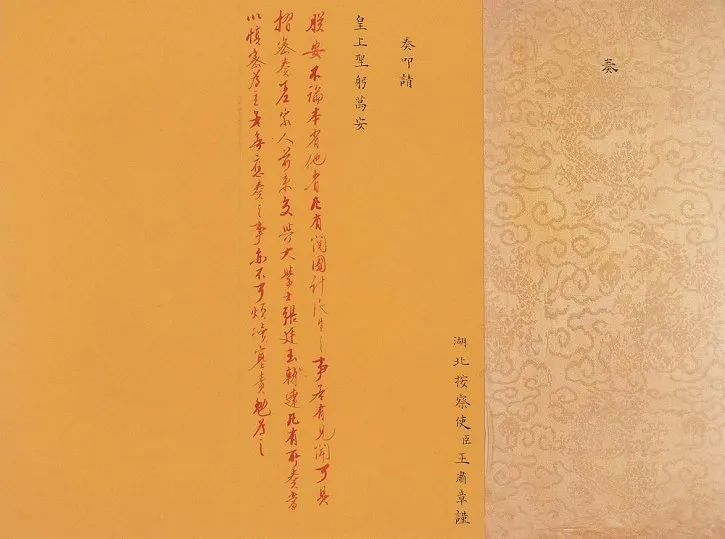 奏
湖北按察使臣王肅章謹
奏叩請
皇上聖躬萬安
朕安不論本省他省凡有關國計民生之事若有見聞可具
摺密奏差家人前來交與大學士張廷玉轉達凡有所奏當
以慎密為主若無應奏之事亦不可煩瀆塞責勉為之